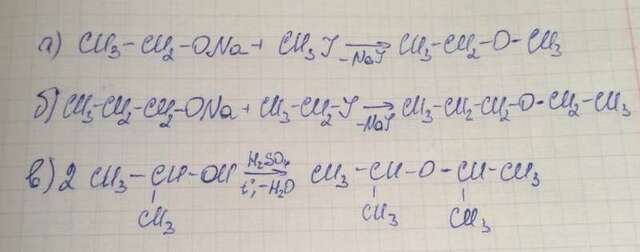 а) CH3-CH2-ONa + CH3J →-NaJ CH3-CH2-O-CH3
б) CH3-CH2-CH2-ONa + CH3-CH2-J →-NaJ CH3-CH2-CH2-O-CH2-CH3
H2SO4
в) 2 CH3-CH-OH → CH3-CH-O-CH-CH3
t°, -H2O
CH3 CH3 CH3